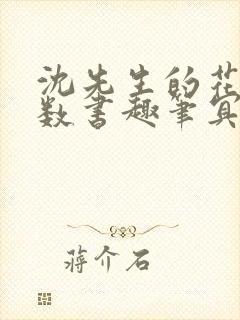 沈先生的花
数书趣笔真
蒋介石